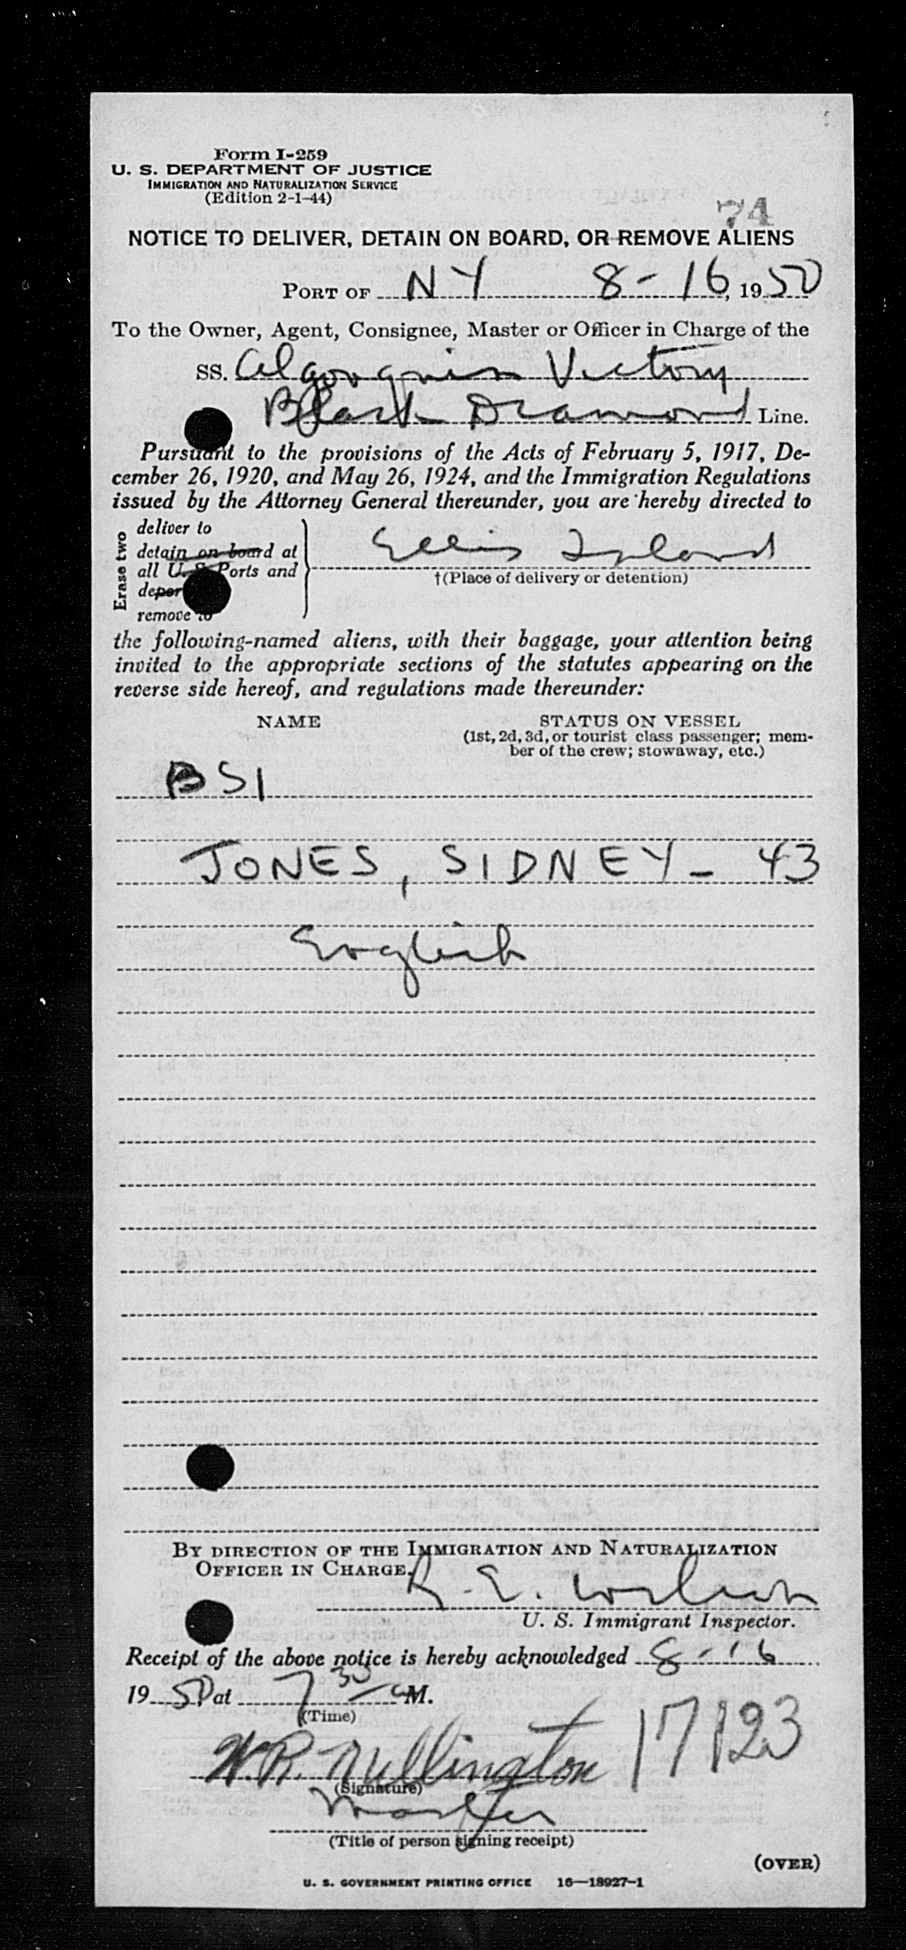 Form I-259
U. S. DEPARTMENT OF JUSTICE
IMMIGRATION AND NATURALIZATION SERVICE
(Edition 2-1-44)
74
NOTICE TO DELIVER, DETAIN ON BOARD, OR REMOVE ALIENS
PORT OF NY 8-16, 1950
To the Owner, Agent, Consignee, Master or Officer in Charge of the
SS. Algonquin Victory
Black Diamond Line.
Pursuant to the provisions of the Acts of February 5, 1917, De-
cember 26, 1920, and May 26, 1924, and the Immigration Regulations
issued by the Attorney General thereunder, you are hereby directed to
Erase two
deliver to
detain on board at
all U. S. Ports and
remove to
Ellis Island
†(Place of delivery or detention)
the following-named aliens, with their baggage, your attention being
invited to the appropriate sections of the statutes appearing on the
reverse side hereof, and regulations made thereunder:
NAME STATUS ON VESSEL
(1st, 2d, 3d, or tourist class passenger; mem-
ber of the crew; stowaway, etc.)
BSI
JONES, SIDNEY - 43
English
BY DIRECTION OF THE IMMIGRATION AND NATURALIZATION
OFFICER IN CHARGE.
R. E.
U. S. Immigrant Inspector.
Receipt of the above notice is hereby acknowledged 8-16
1950 at 7 30 a M.
(Time)
W. R. 17123
(Signature)
Master
(Title of person signing receipt)
(OVER)
U. S. GOVERNMENT PRINTING OFFICE 16—18927-1